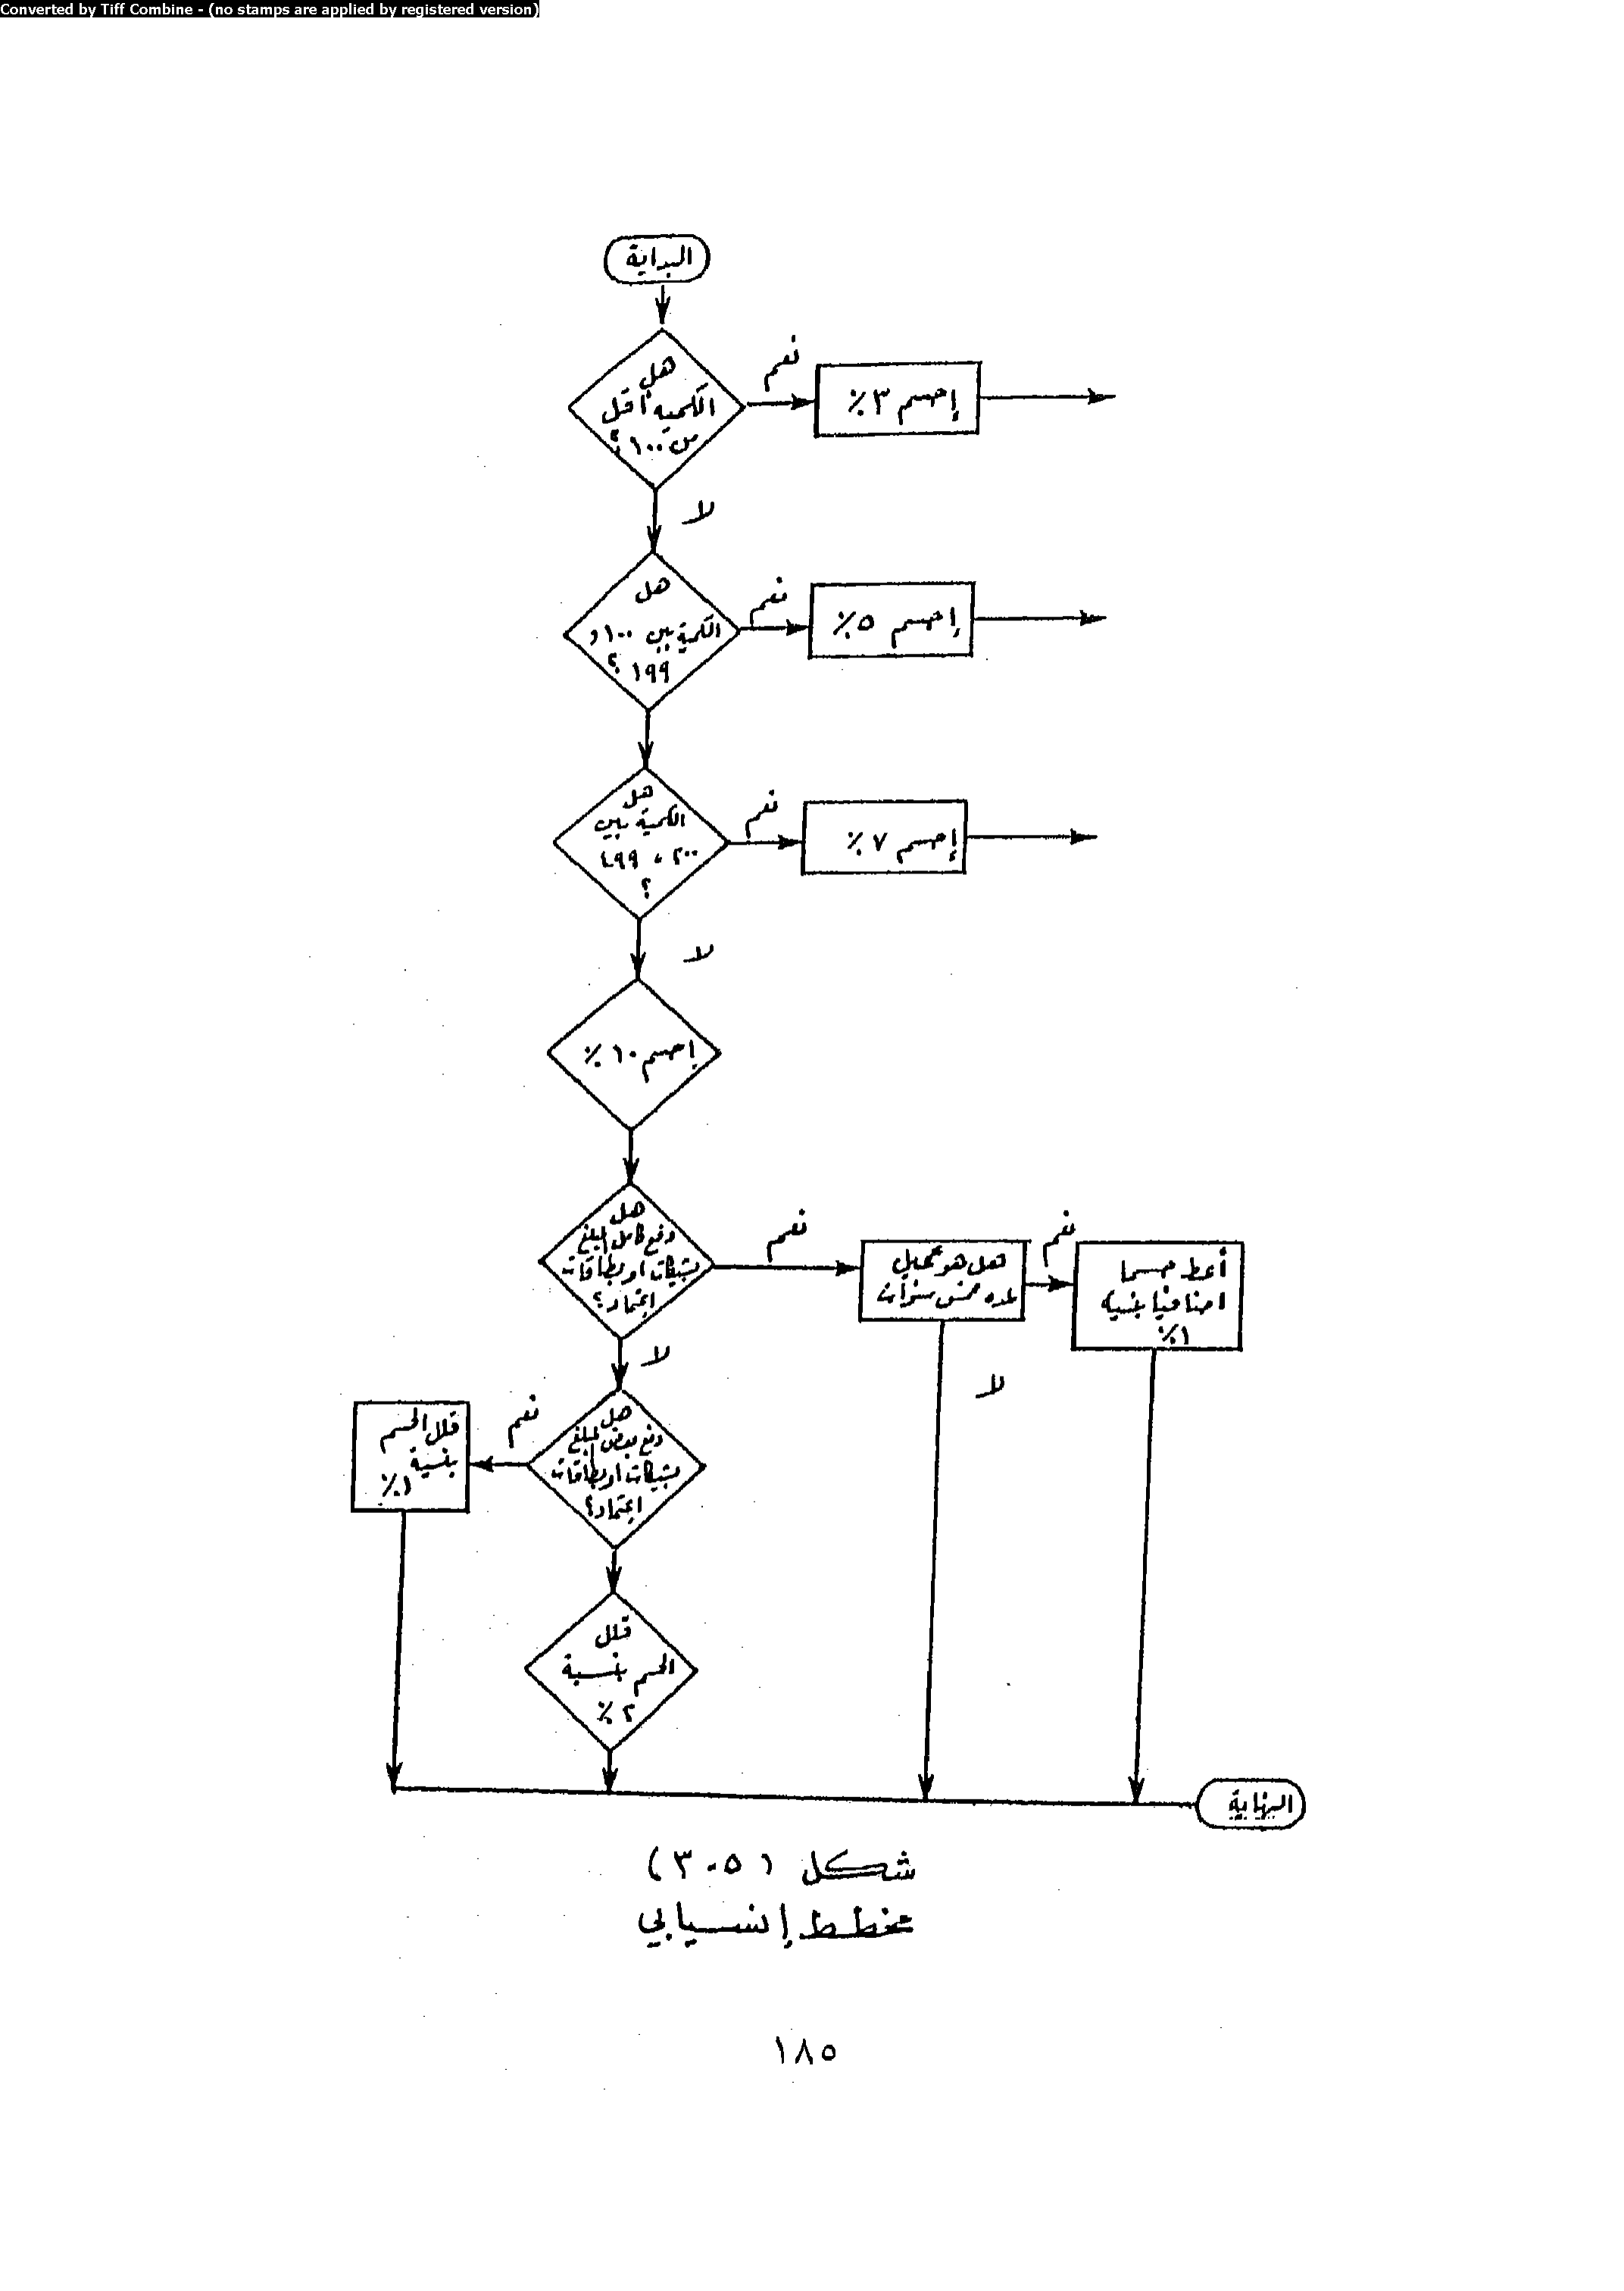 Converted by Tiff Combine - (no stamps are applied by registered version)
البداية
هل
الكميه أقل
من ١٠٠ ؟
نعم
إحسم ٣٪
لا
هل
الكمية بين ١٠٠ و
١٩٩ ؟
نعم
إحسم ٥٪
هل
الكمية بين
٢٠٠ ، ٤٩٩
؟
نعم
إحسم ٧٪
لا
إحسم ١٠٪
هل
دفع كامل المبلغ
بشيكات او بطاقات
إعتماد ؟
نعم
هل هو عميل
لمده خمس سنوات
نعم
أعط حسما
اضافيا بنسبه
١٪
لا
لا
هل
دفع بعض المبلغ
بشيكات او بطاقات
إعتماد ؟
نعم
قلل الحسم
بنسبة
١٪
قلل
الحسم بنسبة
٢٪
النهاية
شكل (٥-٣)
مخطط إنسيابي
١٨٥